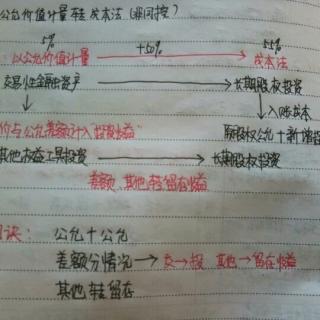 公允价值计量转成本法(非同控)
5% +50% 55%
以公允价值计量 成本法
交易性金融资产 长期股权投资
入账成本
价与公允差额计入"投资收益" 原股权公允+新增投
其他权益工具投资 长期股权投资
差额、其他转留存收益
口诀: 公允+公允
差额分情况→交→投 其他→留存收益
其他转留存